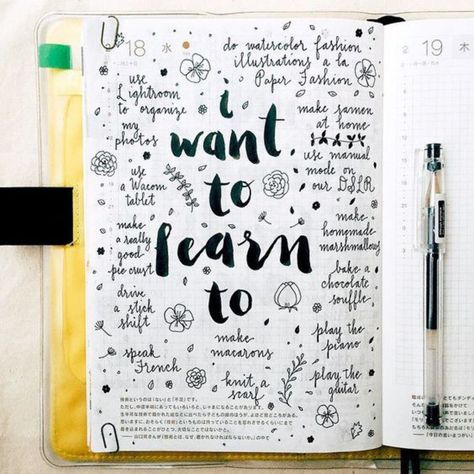 18 水
do watercolor fashion
illustrations a la
Paper Fashion
use
Lightroom
to organize
my
photos
make ramen
at home
use manual
mode on
our DSLR
i
want
to
learn
to
use
a Wacom
tablet
make
a really
good
pie crust
drive
a stick
shift
speak
French
make
homemade
marshmallows
bake a
chocolate
souffle
play the
piano
play the
guitar
make
macarons
knit a
scarf
19 木